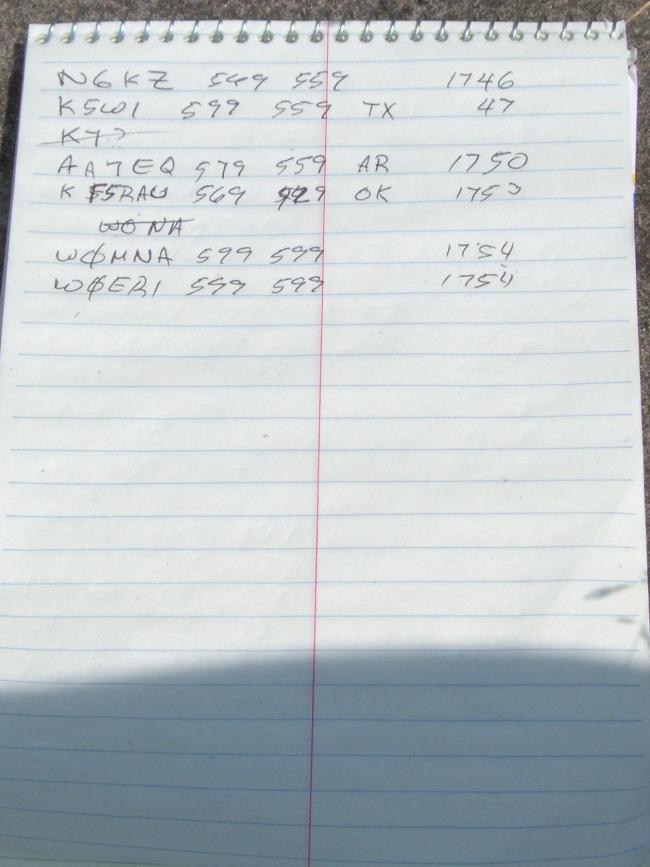 N6KZ 569 559 1746
K5WI 599 559 TX 47
K7?
AA7EQ 579 559 AR 1750
K F5RAU 569 529 OK 1753
W0NA
WØMNA 599 599 1754
WØERI 599 599 1754